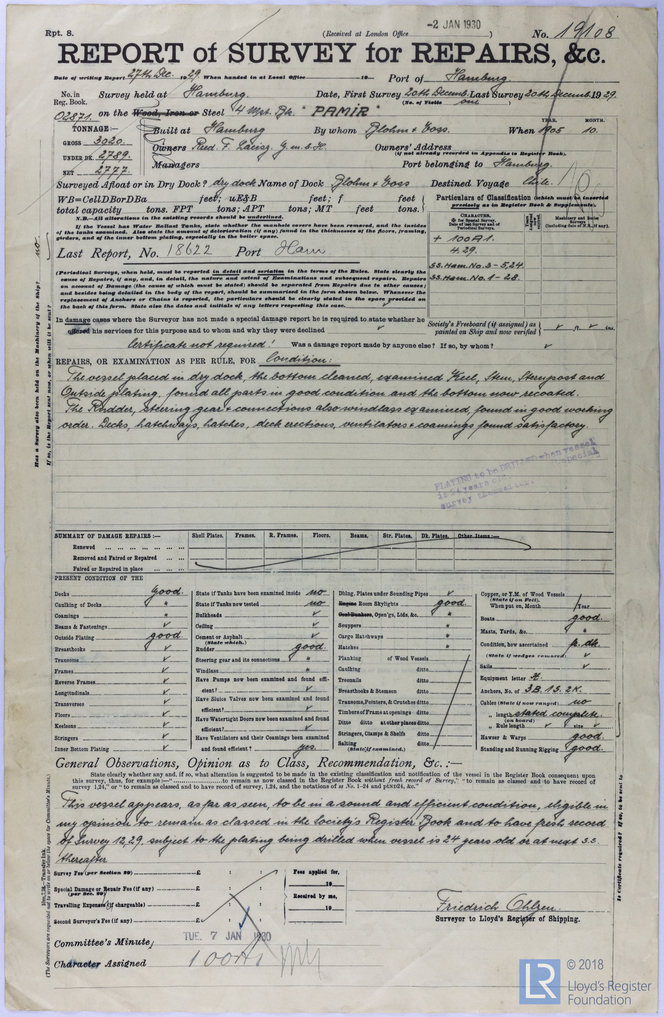 -2 JAN 1930
Rpt. 8.
(Received at London Office )
No. 19108
REPORT of SURVEY for REPAIRS, &c.
Date of writing Report 27th Dec. 1929. When handed in at Local Office 19 Port of Hamburg
No. in Reg. Book. Survey held at Hamburg. Date, First Survey 20th Decemb. Last Survey 20th Decemb. 1929.
(No. of Visits one )
02871. on the Wood, Iron or Steel 4 Mst. Bk. "PAMIR"
TONNAGE:—
GROSS 3020.
UNDER DK. 2789.
NET 2777.
Built at Hamburg By whom Blohm & Voss. When 1905 10.
YEAR. MONTH.
Owners Reed. F. Laeisz, G.m.b.H. Owners' Address
(if not already recorded in Appendix to Register Book).
Managers Port belonging to Hamburg.
Surveyed Afloat or in Dry Dock? dry dock Name of Dock Blohm & Voss Destined Voyage Chile.
WB=CellDBorDBa feet; uE&B feet; f feet
total capacity tons. FPT tons; APT tons; MT feet tons.
N.B.—All alterations in the existing records should be underlined.
If the Vessel has Water Ballast Tanks, state whether the manhole covers have been removed, and the insides
of the tanks examined. Also state the amount of deterioration (if any) found in the thicknesses of the floors, framing,
girders, and of the inner bottom plating, especially in the boiler space.
Particulars of Classification (which must be inserted precisely as in Register Book & Supplements).
+ 100A1.
4.29.
SS. Ham. No. 3-5,24.
SS. Ham. No. 1-28.
Last Report, No. 18622 Port Ham
(Periodical Surveys, when held, must be reported in detail and seriatim in the terms of the Rules. State clearly the
cause of Repairs, if any, and, in detail, the nature and extent of Examinations and subsequent repairs. Repairs
on account of Damage (the cause of which must be stated) should be separated from Repairs due to other causes;
and besides being detailed in the body of the report, should be summarized in the form shown below. Whenever the
replacement of Anchors or Chains is reported, the particulars should be clearly stated in the space provided on
the back of this form. State also the dates and initials of any letters respecting this case.
In damage cases where the Surveyor has not made a special damage report he is required to state whether he
offered his services for this purpose and to whom and why they were declined
Society's Freeboard (if assigned) as painted on Ship and now verified
Certificate not required! Was a damage report made by anyone else? If so, by whom?
REPAIRS, OR EXAMINATION AS PER RULE, FOR Condition:
The vessel placed in dry dock, the bottom cleaned, examined Keel, Stem, Sternpost and
Outside plating, found all parts in good condition and the bottom now recoated.
The Rudder, steering gear & connections also windlass examined, found in good working
order. Decks, hatchways, hatches, deck erections, ventilators & coamings found satisfactory.
PLATING to be DRILLED when vessel
is 24 years old special
survey thereafter.
SUMMARY OF DAMAGE REPAIRS:— Shell Plates. Frames. R. Frames. Floors. Beams. Str. Plates. Dk. Plates. Other Items:—
Renewed
Removed and Faired or Repaired
Faired or Repaired in place
PRESENT CONDITION OF THE
Decks good
Caulking of Decks "
Coamings "
Beams & Fastenings ✓
Outside Plating good
Breasthooks ✓
Transoms ✓
Frames ✓
Reverse Frames ✓
Longitudinals ✓
Transverses ✓
Floors ✓
Keelsons ✓
Stringers ✓
Inner Bottom Plating ✓
State if Tanks have been examined inside no
State if Tanks now tested no
Bulkheads ✓
Ceiling ✓
Cement or Asphalt ✓
(State which.)
Rudder good
Steering gear and its connections "
Windlass "
Have Pumps now been examined and found efficient? ✓
Have Sluice Valves now been examined and found efficient? ✓
Have Watertight Doors now been examined and found efficient? ✓
Have Ventilators and their Coamings been examined and found efficient? yes.
Dblng. Plates under Sounding Pipes ✓
Engine Room Skylights good
Coal Bunkers, Open'gs, Lids, &c. "
Scuppers "
Cargo Hatchways "
Hatches "
Planking of Wood Vessels
Caulking ditto
Treenails ditto
Breasthooks & Stemson ditto
Transoms, Pointers, & Crutches ditto
Timbers of Frame at openings ditto
Ditto ditto at other places ditto
Stringers, Clamps & Shelfs ditto
Salting ditto
(State if examined.)
Copper, or Y.M. of Wood Vessels
(State if on Felt).
When put on, Month Year
Boats good
Masts, Yards, &c. "
Condition, how ascertained p. dk.
(State if wedges removed)
Sails ✓
Equipment letter
Anchors, No. of 3B. 1S. 2K.
Cables (State if now ranged) no
" length stated complete
(on board)
" Rule length ✓
Hawser & Warps good
Standing and Running Rigging good
General Observations, Opinion as to Class, Recommendation, &c.:—
State clearly whether any, and if so, what alteration is suggested to be made in the existing classification and notification of the vessel in the Register Book consequent upon
this survey, thus, for example—" to remain as now classed in the Register Book without fresh record of Survey," "to remain as classed and to have record of
survey 1,24," or "to remain as classed and to have record of survey, 1,24, and the notations of ss No. 1-24 and ptND24, &c."
This vessel appears, as far as seen, to be in a sound and efficient condition, eligible in
my opinion to remain as classed in the Society's Register Book and to have fresh record
of Survey 12,29, subject to the plating being drilled when vessel is 24 years old or at next s.s.
thereafter
Survey Fee (per Section 29) £ : :
Special Damage or Repair Fee (if any) £
(per Sec. 29)
Travelling Expenses (if chargeable) £
Second Surveyor's Fee (if any) £
Fees applied for,
19
Received by me,
19
Friedrich Ohlsen.
Surveyor to Lloyd's Register of Shipping.
Committee's Minute,
TUE. 7 JAN 1930
Character Assigned 100A1
LR © 2018
Lloyd's Register
Foundation